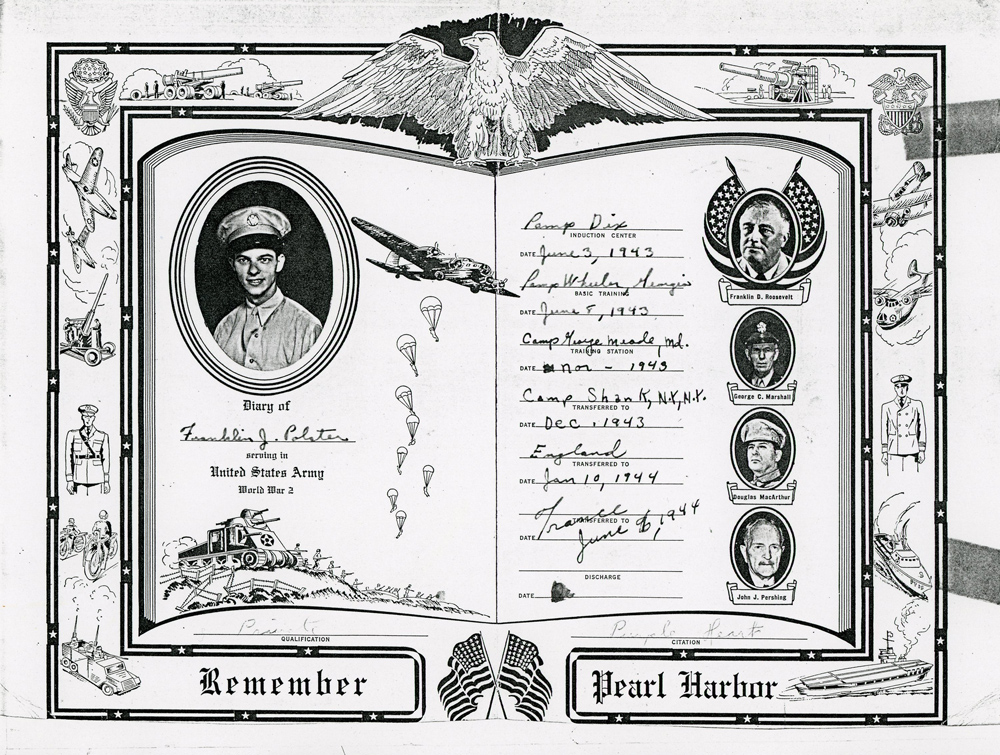 Diary of
Franklin J. Polster
serving in
United States Army
World War 2
Camp Dix
INDUCTION CENTER
DATE June 3, 1943
Camp Wheeler, Georgia
BASIC TRAINING
DATE June 8, 1943
Camp George Meade, Md.
TRAINING STATION
DATE Nov - 1943
Camp Shank, N.Y., N.Y.
TRANSFERRED TO
DATE Dec. 1943
England
TRANSFERRED TO
DATE Jan 10, 1944
France
TRANSFERRED TO
DATE June 6, 1944
DISCHARGE
DATE
Franklin D. Roosevelt
George C. Marshall
Douglas MacArthur
John J. Pershing
Private
QUALIFICATION
Purple Heart
CITATION
Remember
Pearl Harbor